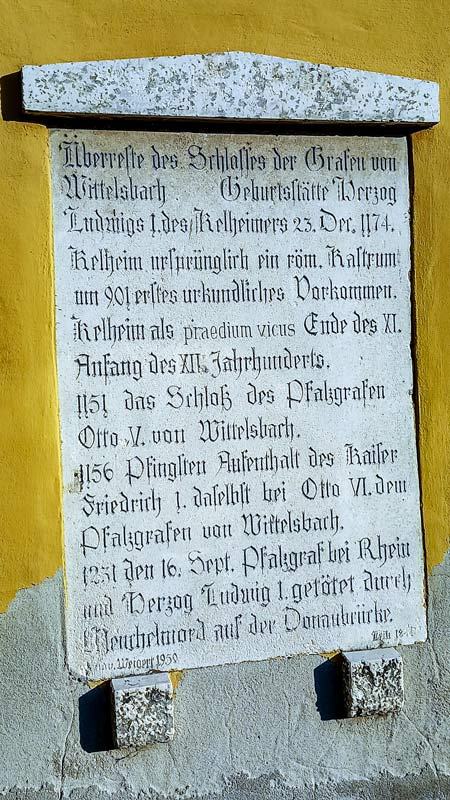 Überreste des Schlosses der Grafen von
Wittelsbach. Geburtsstätte Herzog
Ludwigs I. des Kelheimers 23. Dez. 1174.
Kelheim ursprünglich ein röm. Kastrum
um 901 erstes urkundliches Vorkommen.
Kelheim als praedium vicus Ende des XI.
Anfang des XII. Jahrhunderts.
1151 das Schloß des Pfalzgrafen
Otto V. von Wittelsbach.
1156 Pfingsten Aufenthalt des Kaiser
Friedrich I. daselbst bei Otto VI. dem
Pfalzgrafen von Wittelsbach.
1231 den 16. Sept. Pfalzgraf bei Rhein
und Herzog Ludwig I. getötet durch
Meuchelmord auf der Donaubrücke.
Weigert 1950